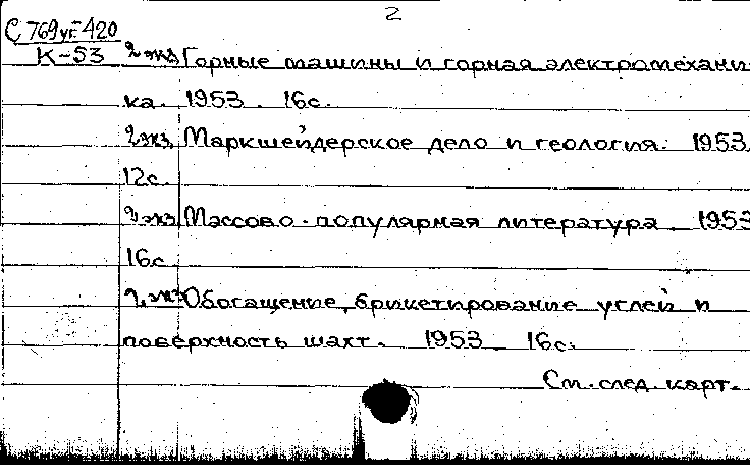 2
С 769уг-420
К-53 2 экз Горные машины и горная электромехани-
ка. 1953. 16с.
2 экз. Маркшейдерское дело и геология. 1953.
12с.
2 экз Массово-популярная литература. 1953
16с
2 экз Обогащение, брикетирование углей и
поверхность шахт. 1953 16с.
См. след. карт.